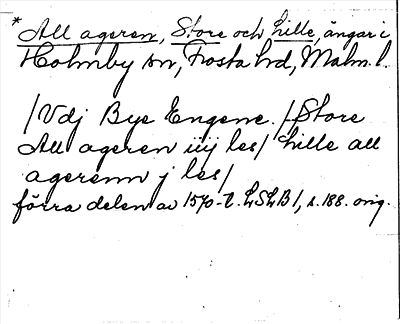 * All ageren, Store och Lille, ängar i
Holmby sn, Frosta hd, Malm. l.
/Vdj Bye Engene. / Store
All ageren iiij les / Lille all
agerenn j les /
förra delen av 1570-t. LSLB 1, s. 188. orig.